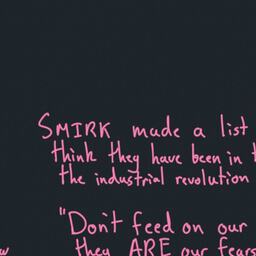 SMIRK made a list
think they have been in t
the industrial revolution
"Don't feed on our
w they ARE our fears